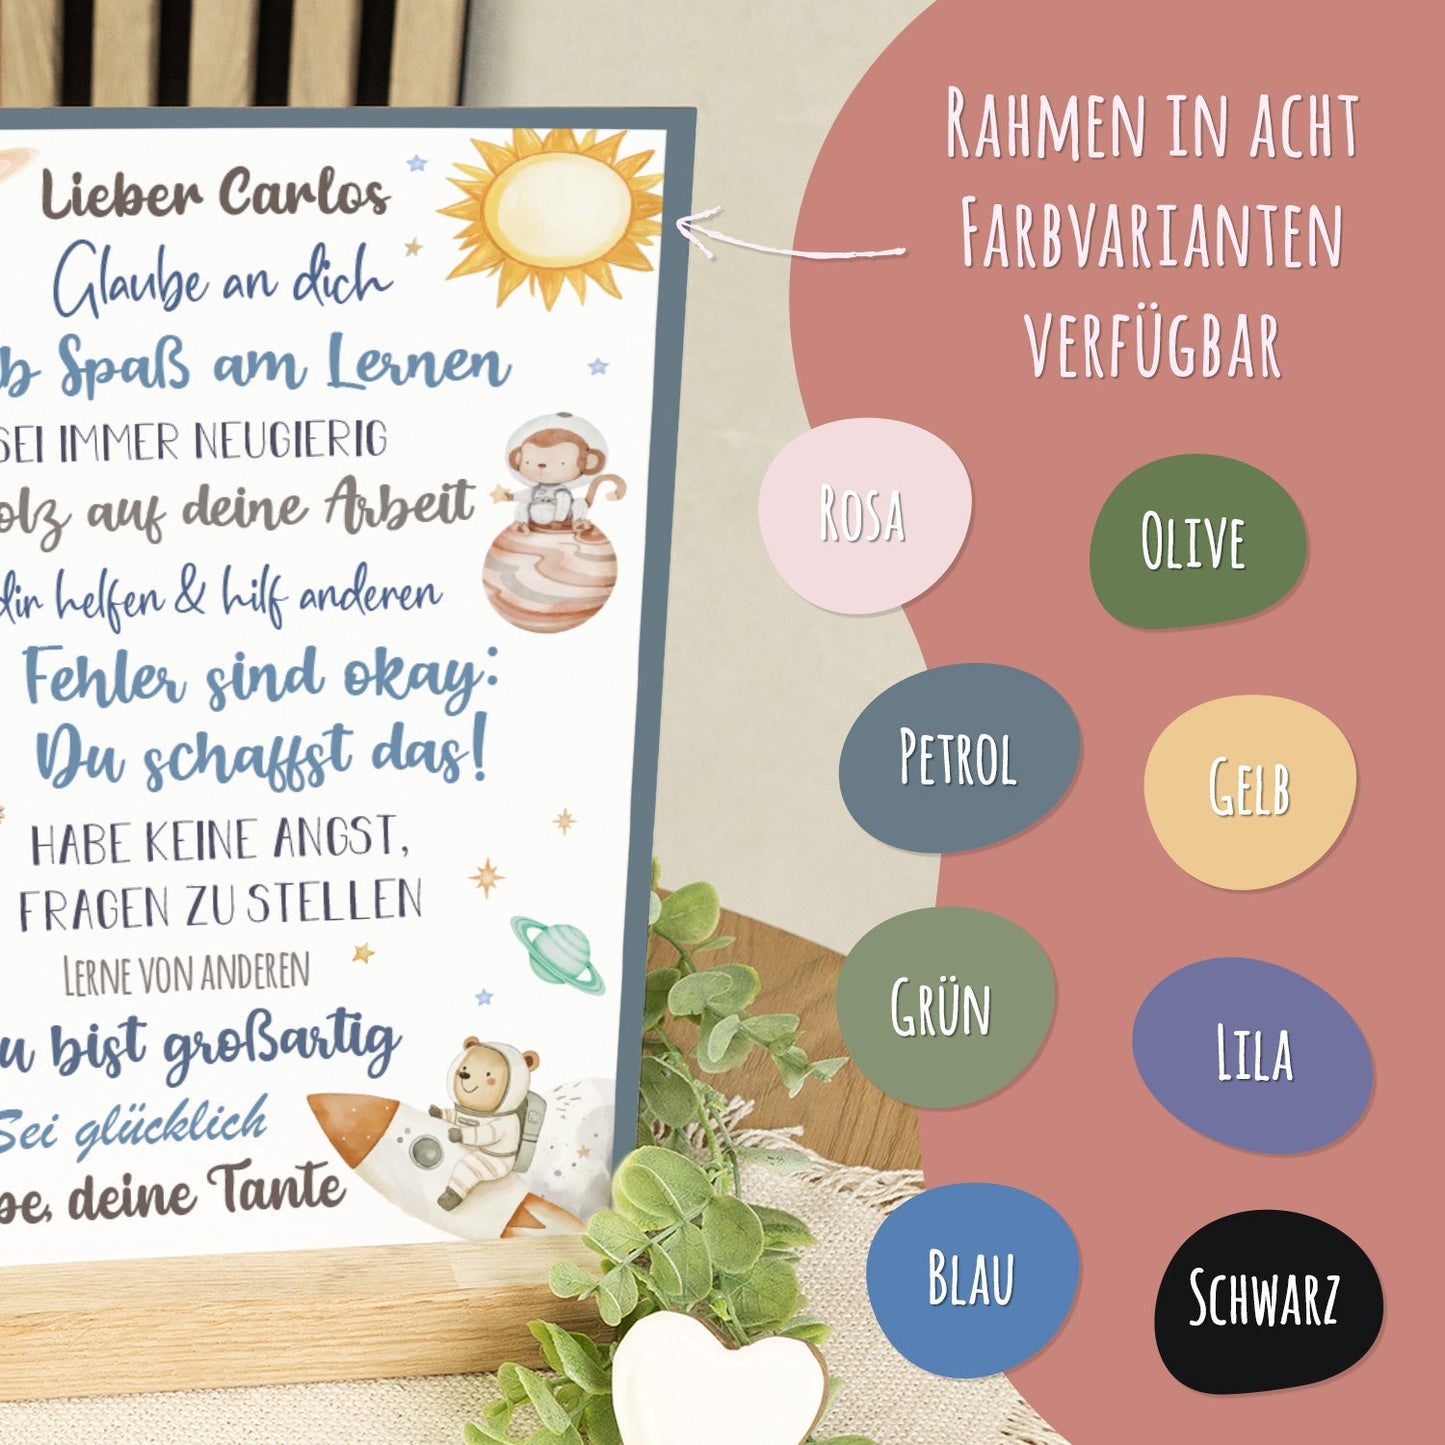 Lieber Carlos
Glaube an dich
Spaß am Lernen
SEI IMMER NEUGIERIG
auf deine Arbeit
dir helfen & hilf anderen
Fehler sind okay:
Du schaffst das!
HABE KEINE ANGST,
FRAGEN ZU STELLEN
LERNE VON ANDEREN
bist großartig
Sei glücklich
deine Tante
RAHMEN IN ACHT
FARBVARIANTEN
VERFÜGBAR
ROSA
OLIVE
PETROL
GELB
GRÜN
LILA
BLAU
SCHWARZ